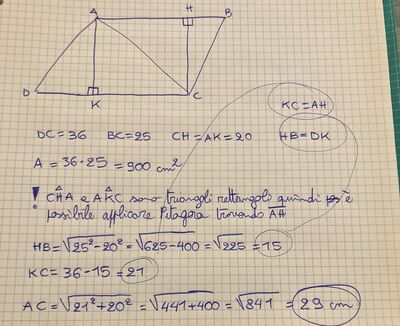 A H B
D K C
KC = AH
DC = 36 BC = 25 CH = AK = 20 HB = DK
A = 36·25 = 900 cm²
! CĤA e AK̂C sono triangoli rettangoli quindi è
possibile applicare Pitagora trovando AH
HB = √25²-20² = √625-400 = √225 = 15
KC = 36-15 = 21
AC = √21²+20² = √441+400 = √841 = 29 cm